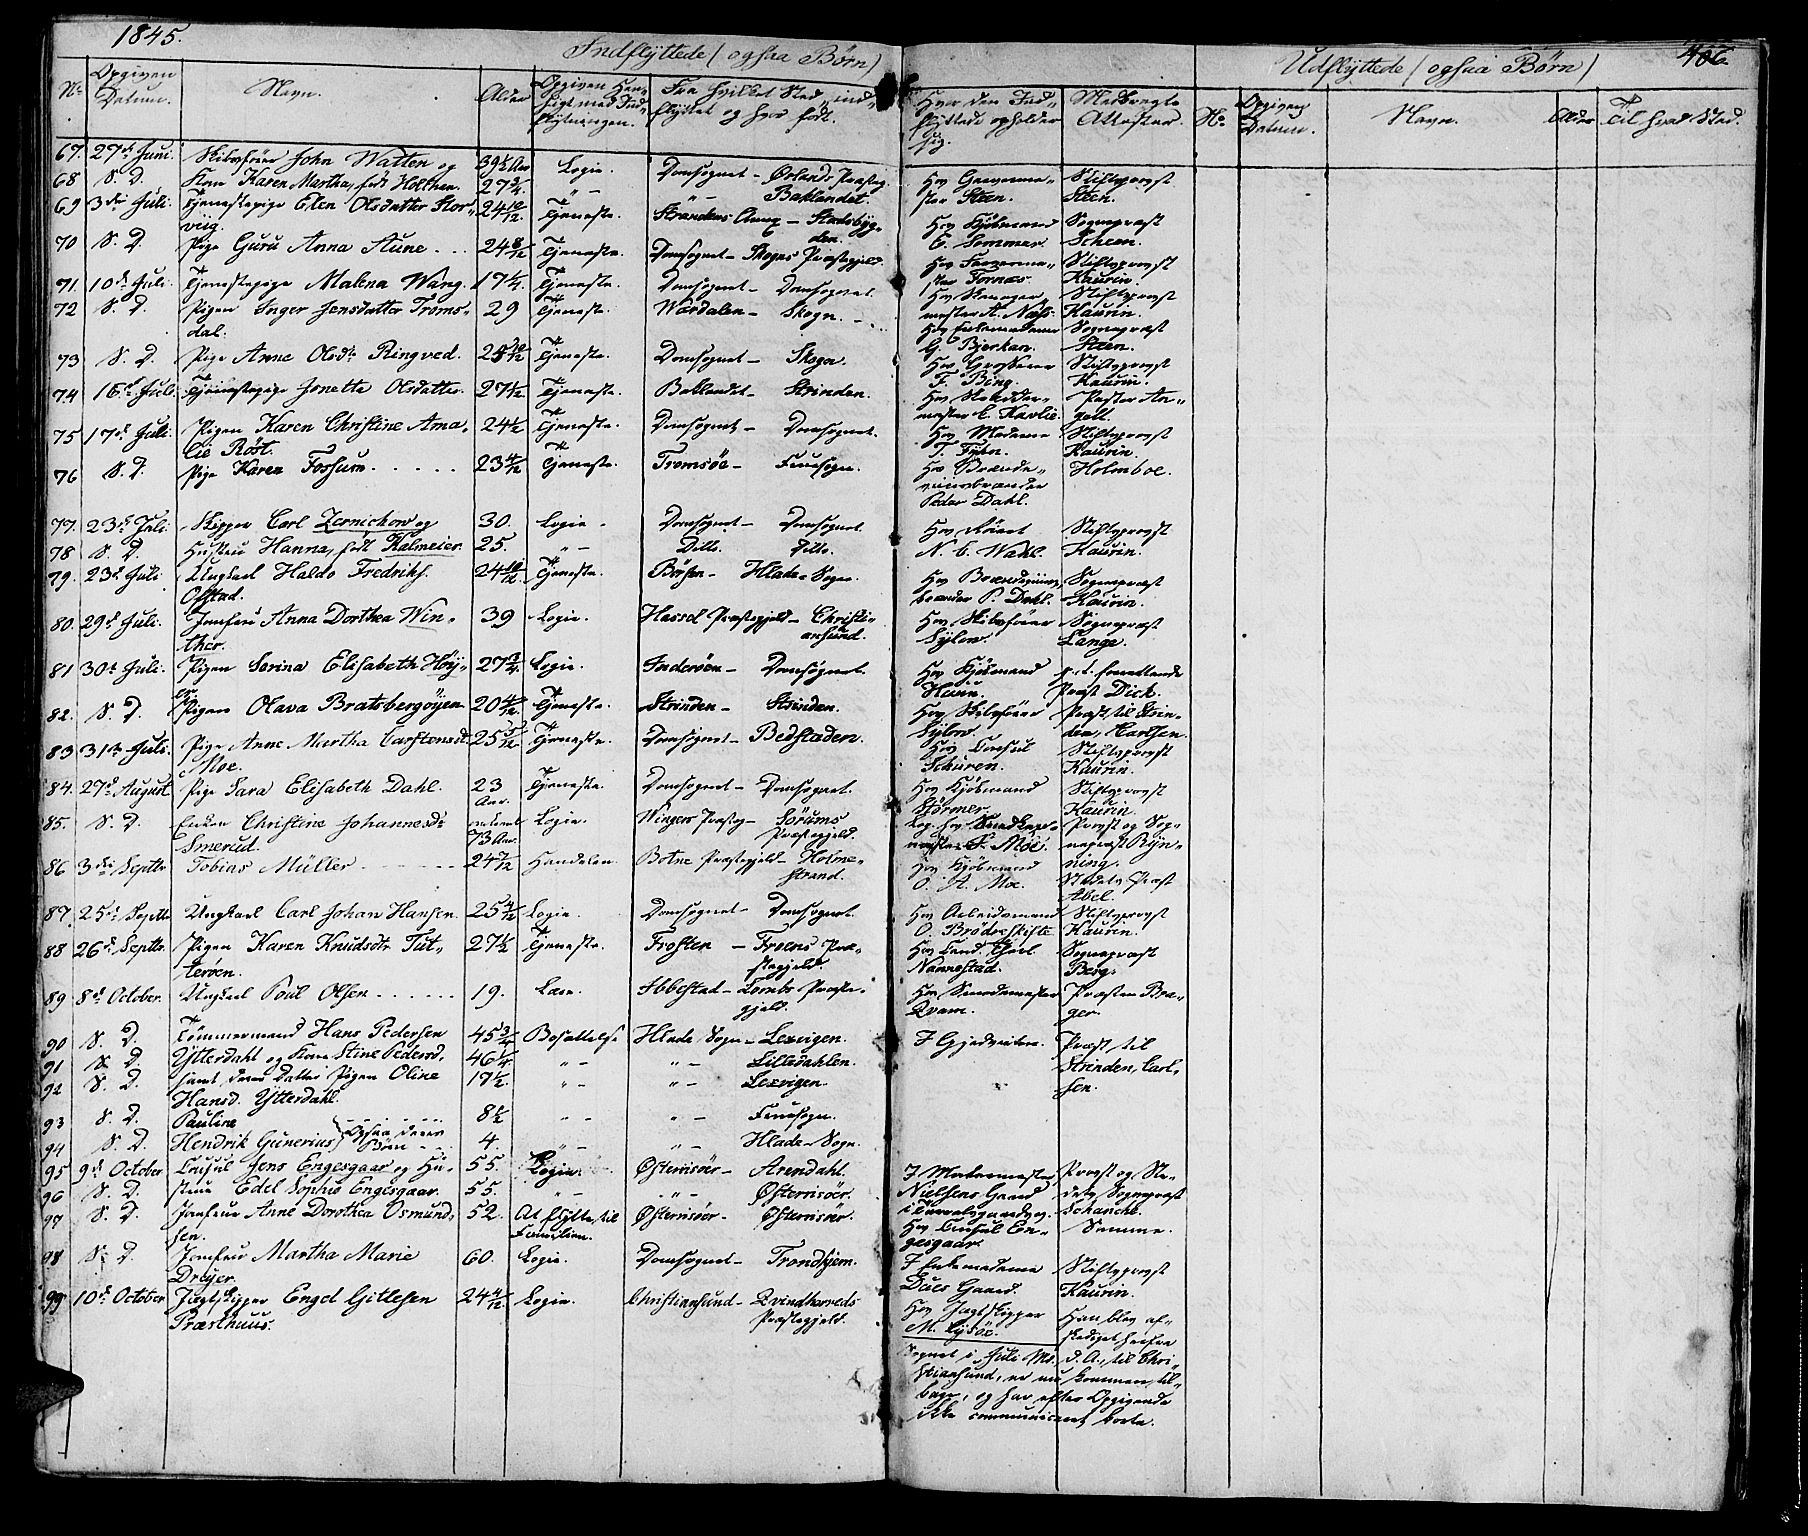 1845.
Indflyttede (ogsaa Børn)
Udflyttede (ogsaa Børn)
406
No
Opgiven Datum.
Navn.
Alder
Opgiven Hensigt med Indflytningen.
Fra hvilket Sted indflyttet og hvor født.
Hvor den Indflyttede opholder sig.
Medbragte Attester.
No
Opgiven Datum.
Navn.
Alder
Til hvad Sted.
67. 27de Juni. Skibsfører John Watten og 39½ Aar Logie. Domsognet - Ørlands Præsteg. Hos Gravermester Steen. Stiftsprovst Steen.
68 S. D. Kone Karen Martha, født Holtman. 27¾. " - " - Baklandet.
69 3die Juli. Tjenestepige Elen Olsdatter Storviig. 24 10/12 Tjeneste. Strandens Annex - Stadsbygden. Hos Kjøbmand C. Sommer. Sognepræst Scheen.
70 S. D. Pige Guru Anna Aune. 24 8/12 Tjeneste. Domsognet - Skogns Præstegjeld. Hos Farvermester Fornæs. Stiftsprovst Kaurin.
71. 10de Juli. Tjenestepige Malena Wang. 17¼. Tjeneste. Domsognet - Domsognet. Stiftsprovst Kaurin.
72 S. D. Pigen Inger Jensdatter Tromsdal. 29 Tjeneste. Wærdalen - Skogn. Hos Enkemadame G. Bjerkan. Sognepræst Steen.
73 S. D. Pige Anne Olsdr Ringved. 25 10/12 Tjeneste. Domsognet - Skogn. Hos Grosserer F. Bing. Stiftsprovst Kaurin.
74 16de Juli. Tjenestepige Jonetta Olsdatter. 27½ Tjeneste. Baklandet - Strinden. Pastor Angell.
75 17de Juli. Pigen Karen Christine Amalie Røst. 24½ Tjeneste. Domsognet - Domsognet. Hos Madame Stiftsprovst Kaurin.
76 S. D. Pige Karen Fossum. 23 4/12 Tjeneste. Tromsøe - Fruesogn. Hos Brændeviinsbrænder Peder Dahl. Holmboe.
77. 23de Juli. Skipper Carl Zernichow og 30. Logie. Domsognet - Domsognet. N. C. Wahl. Stiftsprovst Kaurin.
78 S. D. Hustru Hanna, født Kalmeier. 25. " - Ditto. Ditto.
79. 23de Juli Ungkarl Haldo Fredriks. Ofstad. 24 10/12 Tjeneste. Børsen - Hlade-Sogn. Hos Brændeviinsbrænder P. Dahl. Sognepræst Kaurin.
80. 29de Juli. Jomfru Anna Dorthea Winther. 39 Logie. Hassel Præstegjeld - Christiansund. Hos Skibsfører Sylow. Sognepræst Lange.
81 30te Juli. Pigen Serina Elisabeth Høy- 27¾. Logie. Inderøen - Domsognet. Hos Kjøbmand Præst Dick.
82. S. D. Pigen Olava Bratsbergøyen 20 4/12 Tjeneste. Strinden - Strinden. Hos Skibsfører Sylow. Præst til Strinden, Carlsen.
83 31te Juli. Pige Anne Martha Carstensd. Moe. 25 5/12 Tjeneste. Domsognet - Bedstaden. Hos Consul Schuren. Stiftsprovst Kaurin.
84. 27de August Pige Sara Elisabeth Dahl. 23 Aar. Tjeneste. Domsognet - Domsognet. Hos Kjøbmand Størmer. Stiftsprovst Kaurin.
85. S. D. Enken Christine Johannesdr Smerud. 73 Aar. Logie. Wingers Præsteg. - Sørums Præstegjeld. Provst og Sognepræst Rynning.
86 3die Septbr Tobias Müller 24 7/12 Handelen. Botne Præstegjeld - Holmestrand. Hos Kjøbmand O. A. Moe. Stedets Præst Abel.
87. 25de Septbr Ungkarl Carl Johan Hansen. 25 4/12 Logie. Domsognet - Domsognet. Hos Arbeidsmand O. Brödreskift. Stiftsprovst Kaurin.
88 26de Septbr. Pigen Karen Knudsdr Tutterøen. 27½ Tjeneste. Frosten - Froens Præstegjeld. Hos Cand. Theol. Nannestad. Sognepræst Berg.
89 8de October. Ungkarl Poul Olsen 19. Lære. Ibbestad - Lombs Præstegjeld. Hos Smedemester Qvam. Præsten Brager.
90 S. D. Tömmermand Hans Pedersen 45¾ Bosættelse Hlade Sogn - Lexvigen. I Gjedveiten. Præst til Strinden, Carlsen.
91 S. D. Ytterdahl og Kone Stine Pedersd. 46¼ " - " - Lilledahlen.
92 S. D. samt deres Datter Pigen Oline Hansd. Ytterdahl. 17½. " - " - Lexvigen.
93 S. D. Pauline 8½ " - " - Fruesogn.
94 S. D. Hendrik Gunerius } Ogsaa deres Børn 4. " - " - Hlade-Sogn.
95 9de October Consul Jens Engesgaar og Hu- 55. Logie. Østerrisøer - Arendahl. I Mæklermester Nielsens Gaard Provst og Stedets Sognepræst Schanche.
96 S. D. strue Edel Sophie Engesgaar. 55. " - " - Østerrisøer.
97 S. D. Jomfrue Anne Dorothea Osmundsen. 52. At flytte til Familien. Østerrisøer - Østerrisøer. Hos Consul Engesgaar. Samme.
98 S. D. Jomfru Martha Marie Dreyer. 60. Logie. Domsognet - Trondhjem. I Enkemadame Dues Gaard. Stiftsprovst Kaurin.
99 10de October Jagtskipper Engel Gitlesen Præsthuus. 24 4/12 Logie. Christiansund - Qvindherreds Præstegjeld. Hos Jagtskipper M. Lysöe. Han blev afskediget herfra
i Juli M. d. A. til Christiansund, er nu kommen tilbage, og har efter Opgivende ikke communiceret borte.